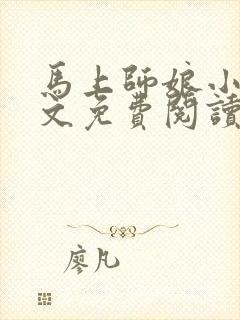 馬上師娘小
文免費閱讀
廖凡